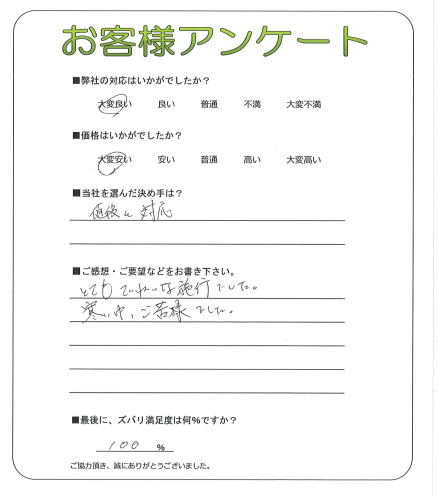 お客様アンケート
■弊社の対応はいかがでしたか？
大変良い 良い 普通 不満 大変不満
■価格はいかがでしたか？
大変安い 安い 普通 高い 大変高い
■当社を選んだ決め手は？
値段と対応
■ご感想・ご要望などをお書き下さい。
とてもていねいな施行でした。
寒い中、ご苦様でした。
■最後に、ズバリ満足度は何％ですか？
100 ％
ご協力頂き、誠にありがとうございました。